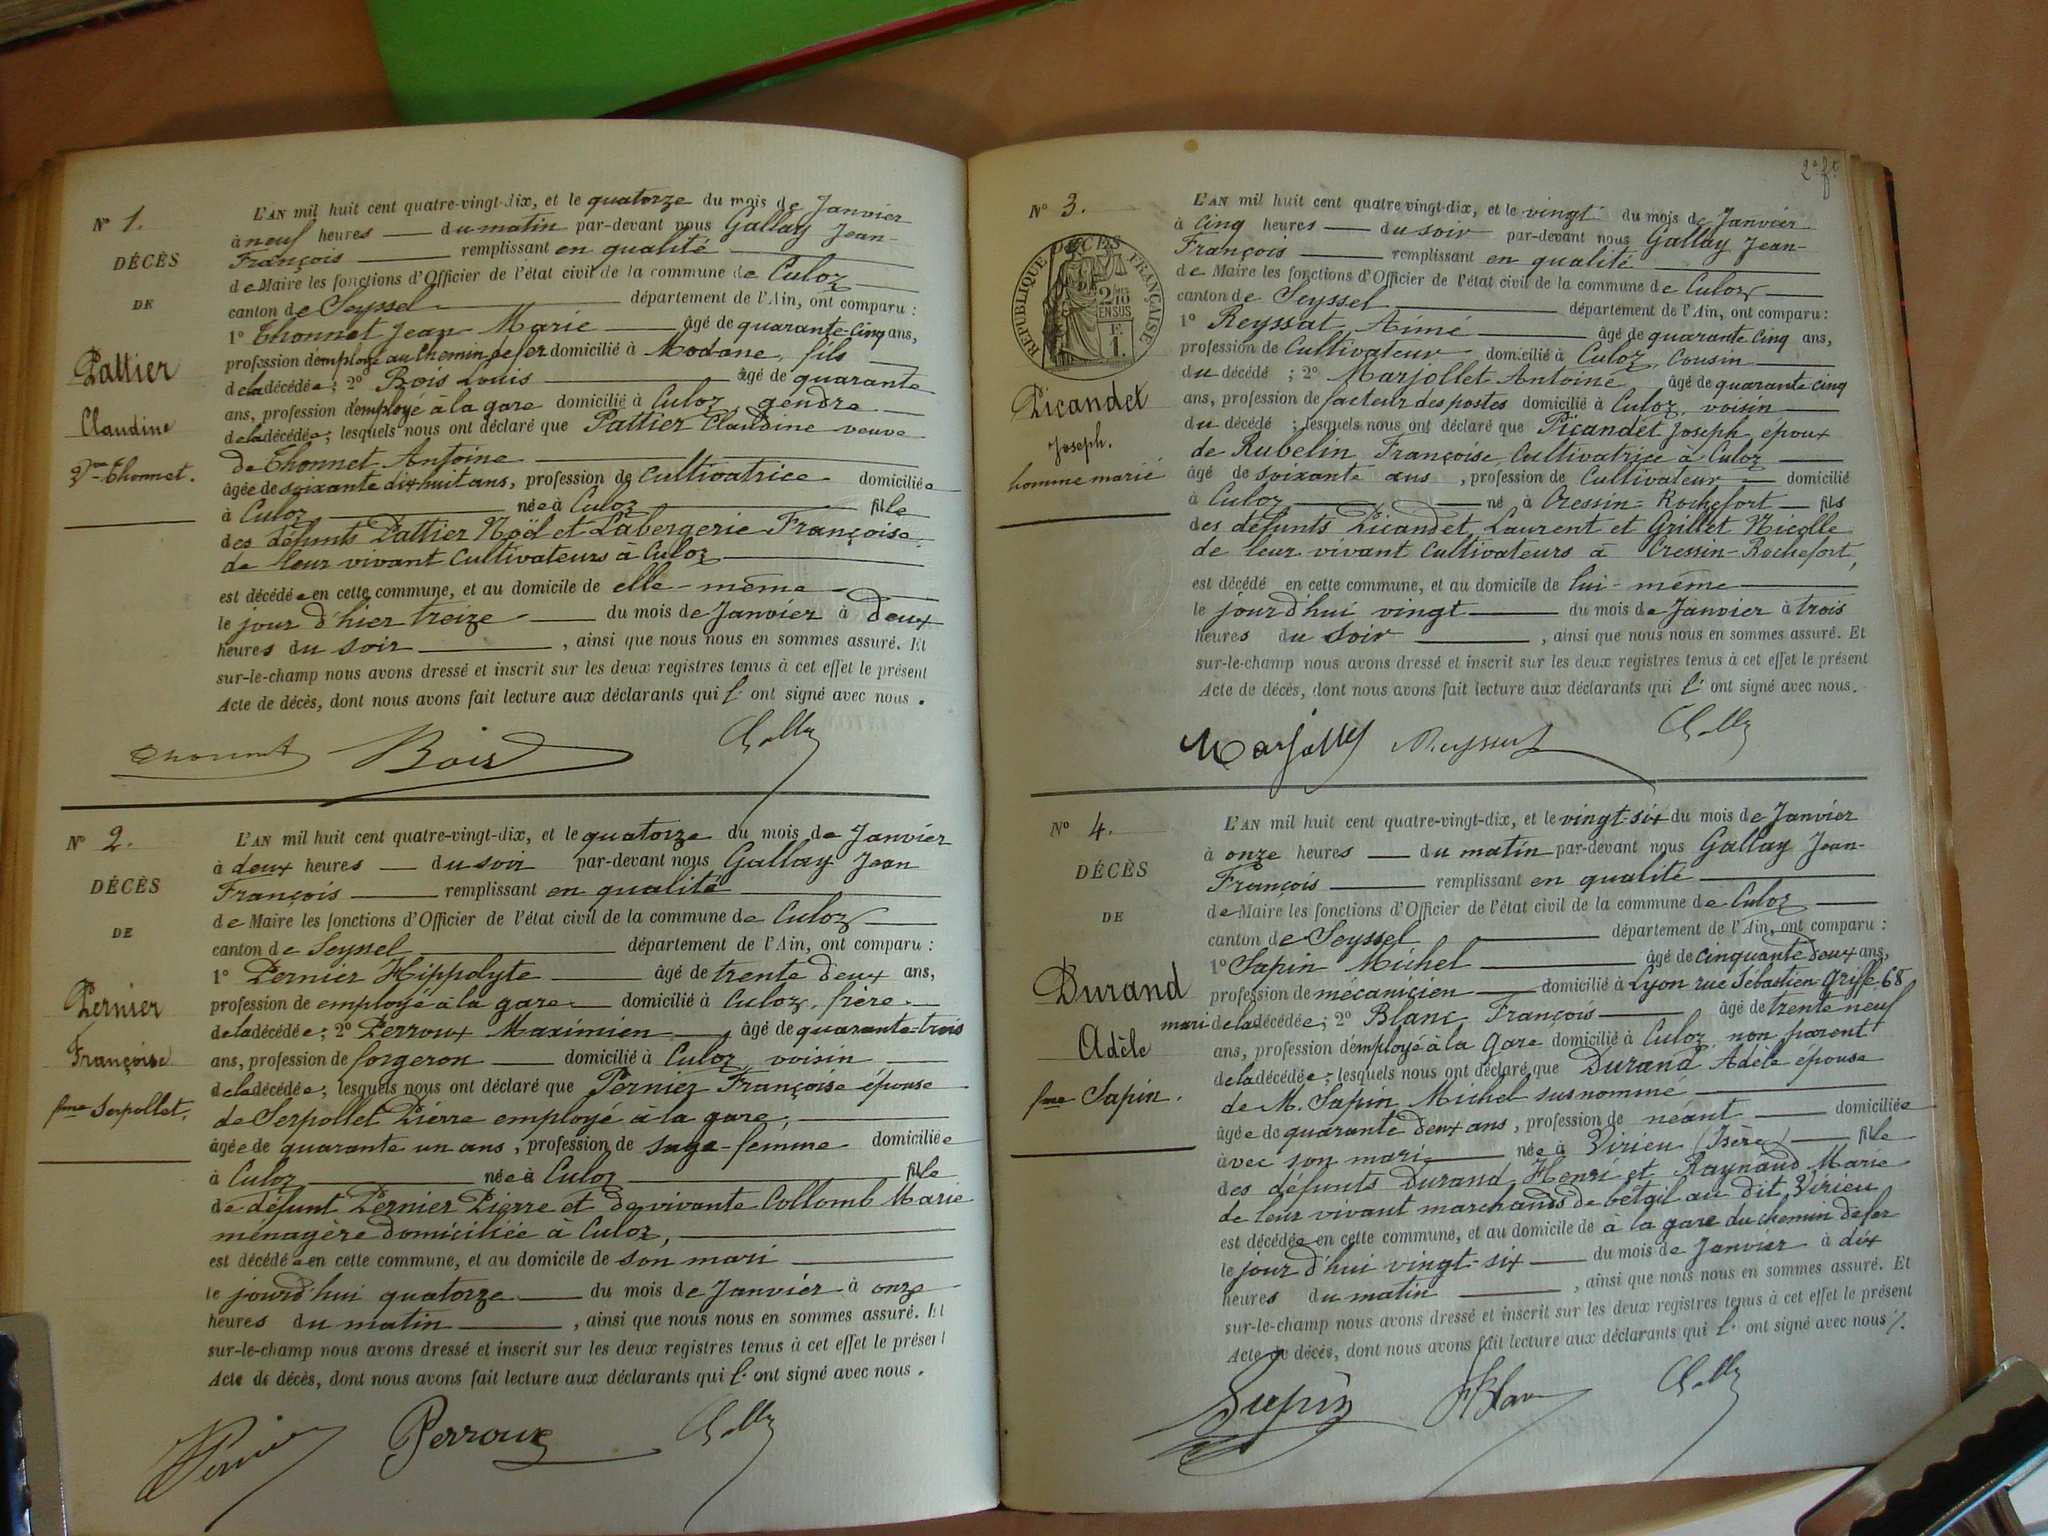 N° 1.
DÉCÈS
DE
Pattier
Claudine
Vve Thonnet.
L'AN mil huit cent quatre-vingt-dix, et le quatorze du mois de Janvier
à neuf heures du matin par-devant nous Gallay Jean-
François remplissant en qualité
de Maire les fonctions d'Officier de l'état civil de la commune de Culoz
canton de Seyssel département de l'Ain, ont comparu :
1° Thonnet Jean Marie âgé de quarante-cinq ans,
profession d'employé au Chemin de fer domicilié à Modane, fils
de la décédée ; 2° Bois Louis âgé de quarante
ans, profession d'employé à la gare domicilié à Culoz, gendre
de la décédée ; lesquels nous ont déclaré que Pattier Claudine veuve
de Thonnet Antoine
âgée de soixante dix-huit ans, profession de Cultivatrice domiciliée
à Culoz née à Culoz fille
des défunts Pattier Noël et Labergerie Françoise
de leur vivant Cultivateurs à Culoz
est décédée en cette commune, et au domicile de elle-même
le jour d'hier treize du mois de Janvier à deux
heures du soir, ainsi que nous nous en sommes assuré. Et
sur-le-champ nous avons dressé et inscrit sur les deux registres tenus à cet effet le présent
Acte de décès, dont nous avons fait lecture aux déclarants qui l' ont signé avec nous.
Thonnet Bois Gallay
N° 2.
DÉCÈS
DE
Pernier
Françoise
fme Serpollet.
L'AN mil huit cent quatre-vingt-dix, et le quatorze du mois de Janvier
à deux heures du soir par-devant nous Gallay Jean
François remplissant en qualité
de Maire les fonctions d'Officier de l'état civil de la commune de Culoz
canton de Seyssel département de l'Ain, ont comparu :
1° Pernier Hippolyte âgé de trente deux ans,
profession de employé à la gare domicilié à Culoz, frère
de la décédée ; 2° Perroux Maximien âgé de quarante-trois
ans, profession de forgeron domicilié à Culoz, voisin
de la décédée ; lesquels nous ont déclaré que Pernier Françoise épouse
de Serpollet Pierre employé à la gare,
âgée de quarante un ans, profession de sage-femme domiciliée
à Culoz née à Culoz fille
de défunt Pernier Pierre et de vivante Collomb Marie
ménagère domiciliée à Culoz,
est décédée en cette commune, et au domicile de son mari
le jourd'hui quatorze du mois de Janvier à onze
heures du matin, ainsi que nous nous en sommes assuré. Et
sur-le-champ nous avons dressé et inscrit sur les deux registres tenus à cet effet le présent
Acte de décès, dont nous avons fait lecture aux déclarants qui l' ont signé avec nous.
Pernier Perroux Gallay
2e ft
N° 3.
DÉCÈS
RÉPUBLIQUE FRANÇAISE
2/10
EN SUS
F.
1.
Picandet
Joseph.
homme marié
L'AN mil huit cent quatre-vingt-dix, et le vingt du mois de Janvier
à Cinq heures du soir par-devant nous Gallay Jean-
François remplissant en qualité
de Maire les fonctions d'Officier de l'état civil de la commune de Culoz
canton de Seyssel département de l'Ain, ont comparu :
1° Reyssat Aimé âgé de quarante cinq ans,
profession de Cultivateur domicilié à Culoz, Cousin
du décédé ; 2° Marjollet Antoine âgé de quarante cinq
ans, profession de facteur des postes domicilié à Culoz, voisin
du décédé ; lesquels nous ont déclaré que Picandet Joseph, epoux
de Rubelin Françoise, Cultivatrice à Culoz
âgé de soixante ans, profession de Cultivateur domicilié
à Culoz né à Cressin-Rochefort fils
des défunts Picandet Laurent et Grillet Nicolle
de leur vivant Cultivateurs à Cressin-Rochefort,
est décédé en cette commune, et au domicile de lui-même
le jourd'hui vingt du mois de Janvier à trois
heures du soir, ainsi que nous nous en sommes assuré. Et
sur-le-champ nous avons dressé et inscrit sur les deux registres tenus à cet effet le présent
Acte de décès, dont nous avons fait lecture aux déclarants qui l' ont signé avec nous.
Marjollet Reyssat Gallay
N° 4.
DÉCÈS
DE
Durand
Adèle
fme Sapin.
L'AN mil huit cent quatre-vingt-dix, et le vingt-six du mois de Janvier
à onze heures du matin par-devant nous Gallay Jean-
François remplissant en qualité
de Maire les fonctions d'Officier de l'état civil de la commune de Culoz
canton de Seyssel département de l'Ain, ont comparu :
1° Sapin Michel âgé de cinquante deux ans,
profession de mécanicien domicilié à Lyon rue Sébastien Griffe 68
mari de la décédée ; 2° Blanc François âgé de trente neuf
ans, profession d'employé à la gare domicilié à Culoz, non parent
de la décédée ; lesquels nous ont déclaré que Durand Adèle épouse
de M. Sapin Michel susnommé
âgée de quarante deux ans, profession de néant domiciliée
avec son mari née à Virieu (Isère) fille
des défunts Durand Henri et Raynaud Marie
de leur vivant marchands de bétail au dit Virieu
est décédée en cette commune, et au domicile de à la gare du chemin de fer
le jourd'hui vingt-six du mois de Janvier à dix
heures du matin, ainsi que nous nous en sommes assuré. Et
sur-le-champ nous avons dressé et inscrit sur les deux registres tenus à cet effet le présent
Acte de décès, dont nous avons fait lecture aux déclarants qui l' ont signé avec nous.
Sapin Blanc Gallay